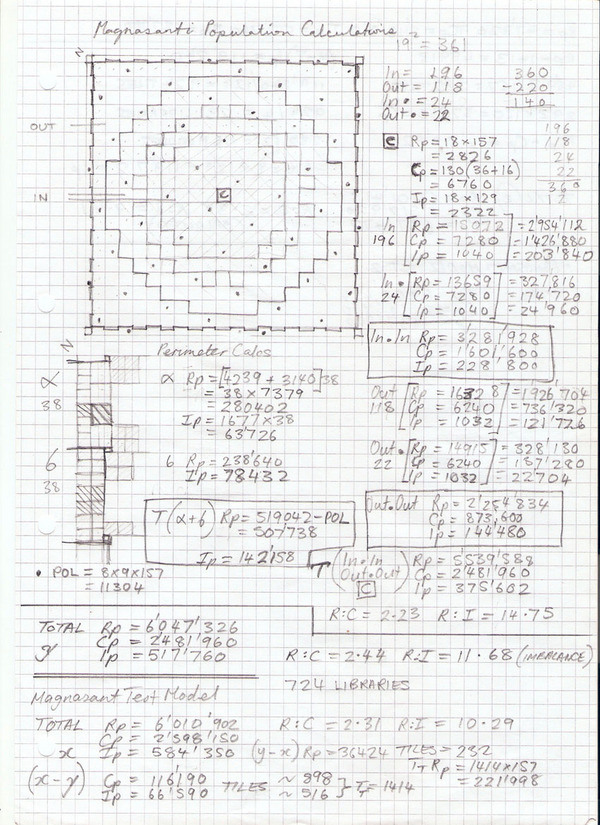 Magnasanti Population Calculations
19² = 361
N
In = 196 360
Out = 118 -220
In• = 24 140
Out• = 22
OUT
IN
C
196
118
24
22
360
12
C Rp = 18×157
= 2826
Cp = 130(36+16)
= 6760
Ip = 18×129
= 2322
In 196 [Rp = 15072] = 2'954'112
Cp = 7280 = 1'426'880
Ip = 1040 = 203'840
In• 24 [Rp = 13659] = 327'816
Cp = 7280 = 174'720
Ip = 1040 = 24'960
In•In Rp = 3'281'928
Cp = 1'601'600
Ip = 228'800
Out 118 [Rp = 16328] = 1'926'704
Cp = 6240 = 736'320
Ip = 1032 = 121'776
Out• 22 [Rp = 14915] = 328'130
Cp = 6240 = 137'280
Ip = 1032 = 22704
Out•Out Rp = 2'254'834
Cp = 873,600
Ip = 144'480
N
Perimeter Calcs
α 38
α Rp = [4239 + 3140]38
= 38×7379
= 280402
Ip = 1677×38
= 63726
6 38
6 Rp = 238'640
Ip = 78432
T(α+6) Rp = 519042-POL
= 507'738
Ip = 142'158
• POL = 8×9×157
= 11304
(In•In Out•Out) C
Rp = 5539'588
Cp = 2'481'960
Ip = 375'602
R:C = 2.23 R:I = 14.75
TOTAL Rp = 6'047'326
y Cp = 2'481'960
Ip = 517'760
R:C = 2.44 R:I = 11.68 (IMBALANCE)
724 LIBRARIES
Magnasant Test Model
TOTAL Rp = 6'010'902 R:C = 2.31 R:I = 10.29
Cp = 2'598'150
x Ip = 584'350 (y-x) Rp = 36424 TILES = 232
(x-y) Cp = 116'190 TILES ~ 898
Ip = 66'590 ~ 516 } TT = 1414
TT Rp = 1414×157
= 221'998